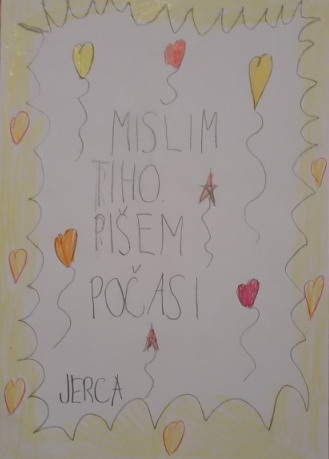 MISLIM
TIHO.
PIŠEM
POČASI
JERCA